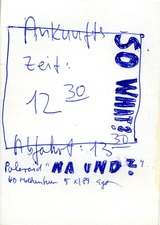 Ankunfts
Zeit:
12 30
SO WHAT?
Abfahrt: 13 30
Polaroid "NA UND?"
40